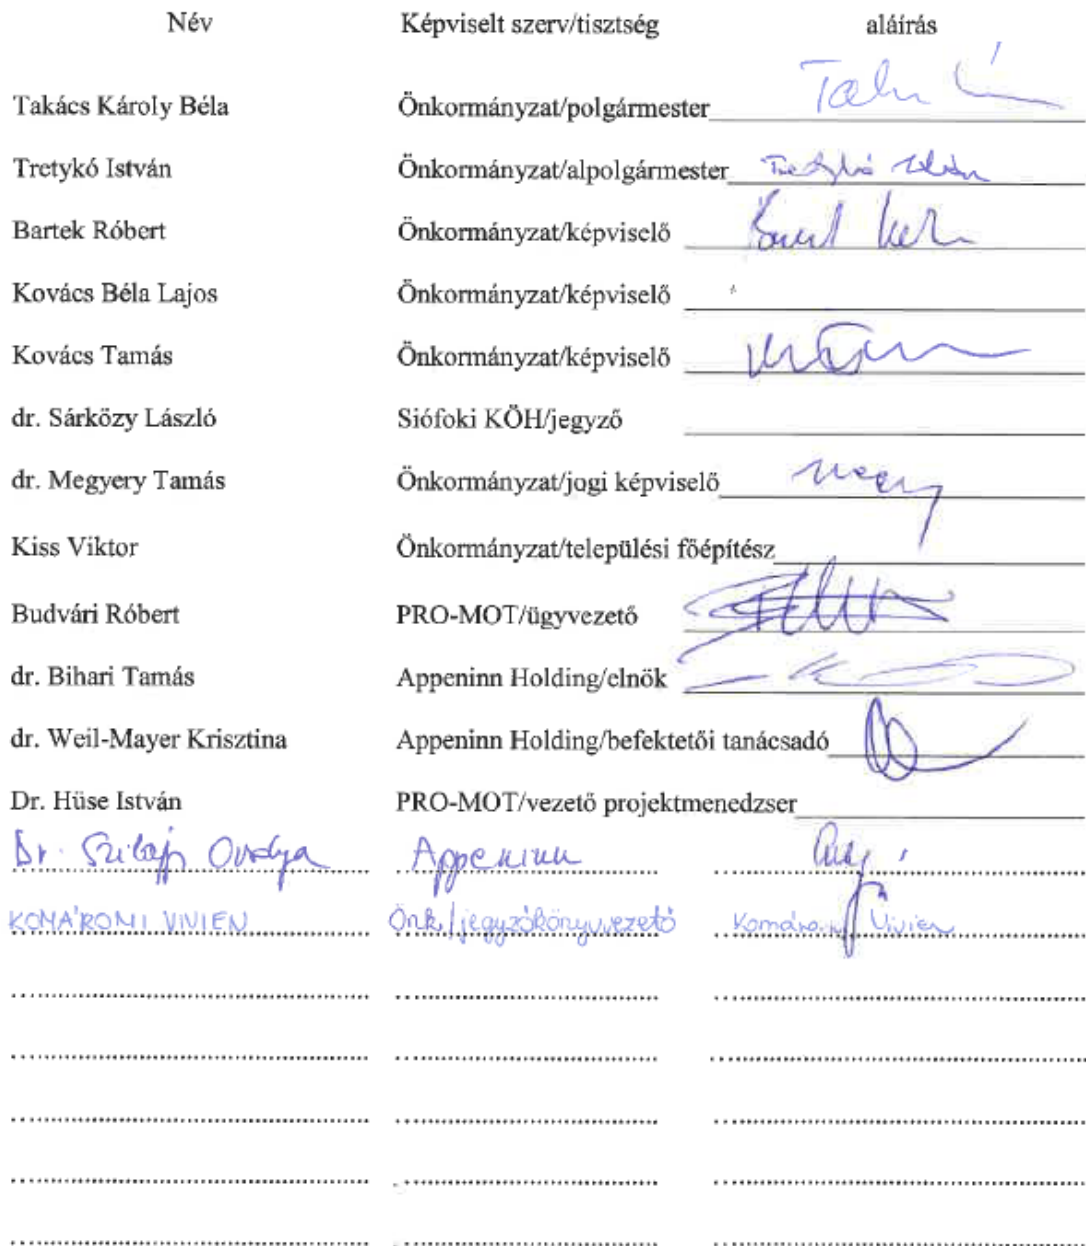 Név Képviselt szerv/tisztség aláírás
Takács Károly Béla Önkormányzat/polgármester
Tretykó István Önkormányzat/alpolgármester Tretykó István
Bartek Róbert Önkormányzat/képviselő
Kovács Béla Lajos Önkormányzat/képviselő
Kovács Tamás Önkormányzat/képviselő
dr. Sárközy László Siófoki KÖH/jegyző
dr. Megyery Tamás Önkormányzat/jogi képviselő
Kiss Viktor Önkormányzat/települési főépítész
Budvári Róbert PRO-MOT/ügyvezető
dr. Bihari Tamás Appeninn Holding/elnök
dr. Weil-Mayer Krisztina Appeninn Holding/befektetői tanácsadó
Dr. Hüse István PRO-MOT/vezető projektmenedzser
Dr. Appeninn
KOMÁROMI VIVIEN Önk./jegyzőkönyvvezető Komáromi Vivien